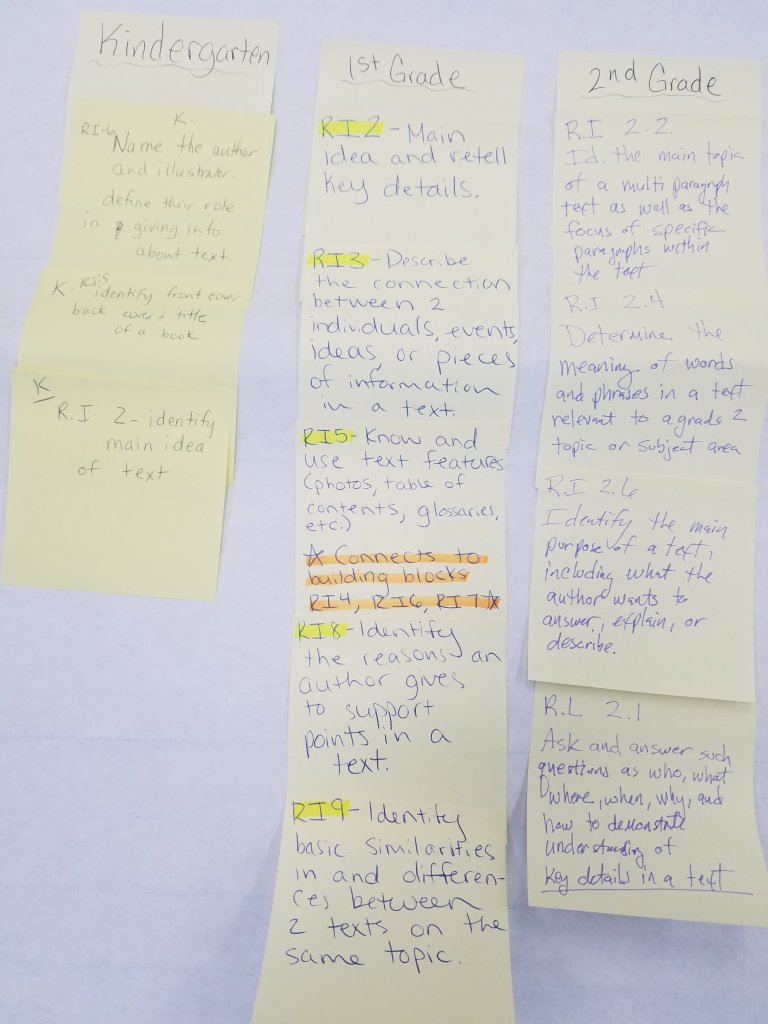 Kindergarten
K.
RI-6
Name the author
and illustrator.
define their role
in giving info
about text.
K. RI.5 identify front cover
back cover & title
of a book
K
R.I. 2 - identify
main idea
of text
1st Grade
RI2 - Main
idea and retell
key details.
RI3 - Describe
the connection
between 2
individuals, events,
ideas, or pieces
of information
in a text.
RI5 - Know and
use text features
(photos, table of
contents, glossaries,
etc.)
☆ Connects to
building blocks
RI4, RI6, RI7 ☆
RI8 - Identify
the reasons an
author gives
to support
points in a
text.
RI9 - Identify
basic similarities
in and differen-
ces between
2 texts on the
same topic.
2nd Grade
R.I 2.2
Id. the main topic
of a multi paragraph
text as well as the
focus of specific
paragraphs within
the text
R.I 2.4
Determine the
meaning of words
and phrases in a text
relevant to a grade 2
topic or subject area
R.I 2.6
Identify the main
purpose of a text,
including what the
author wants to
answer, explain, or
describe.
R.L 2.1
Ask and answer such
questions as who, what
where, when, why, and
how to demonstrate
understanding of
key details in a text